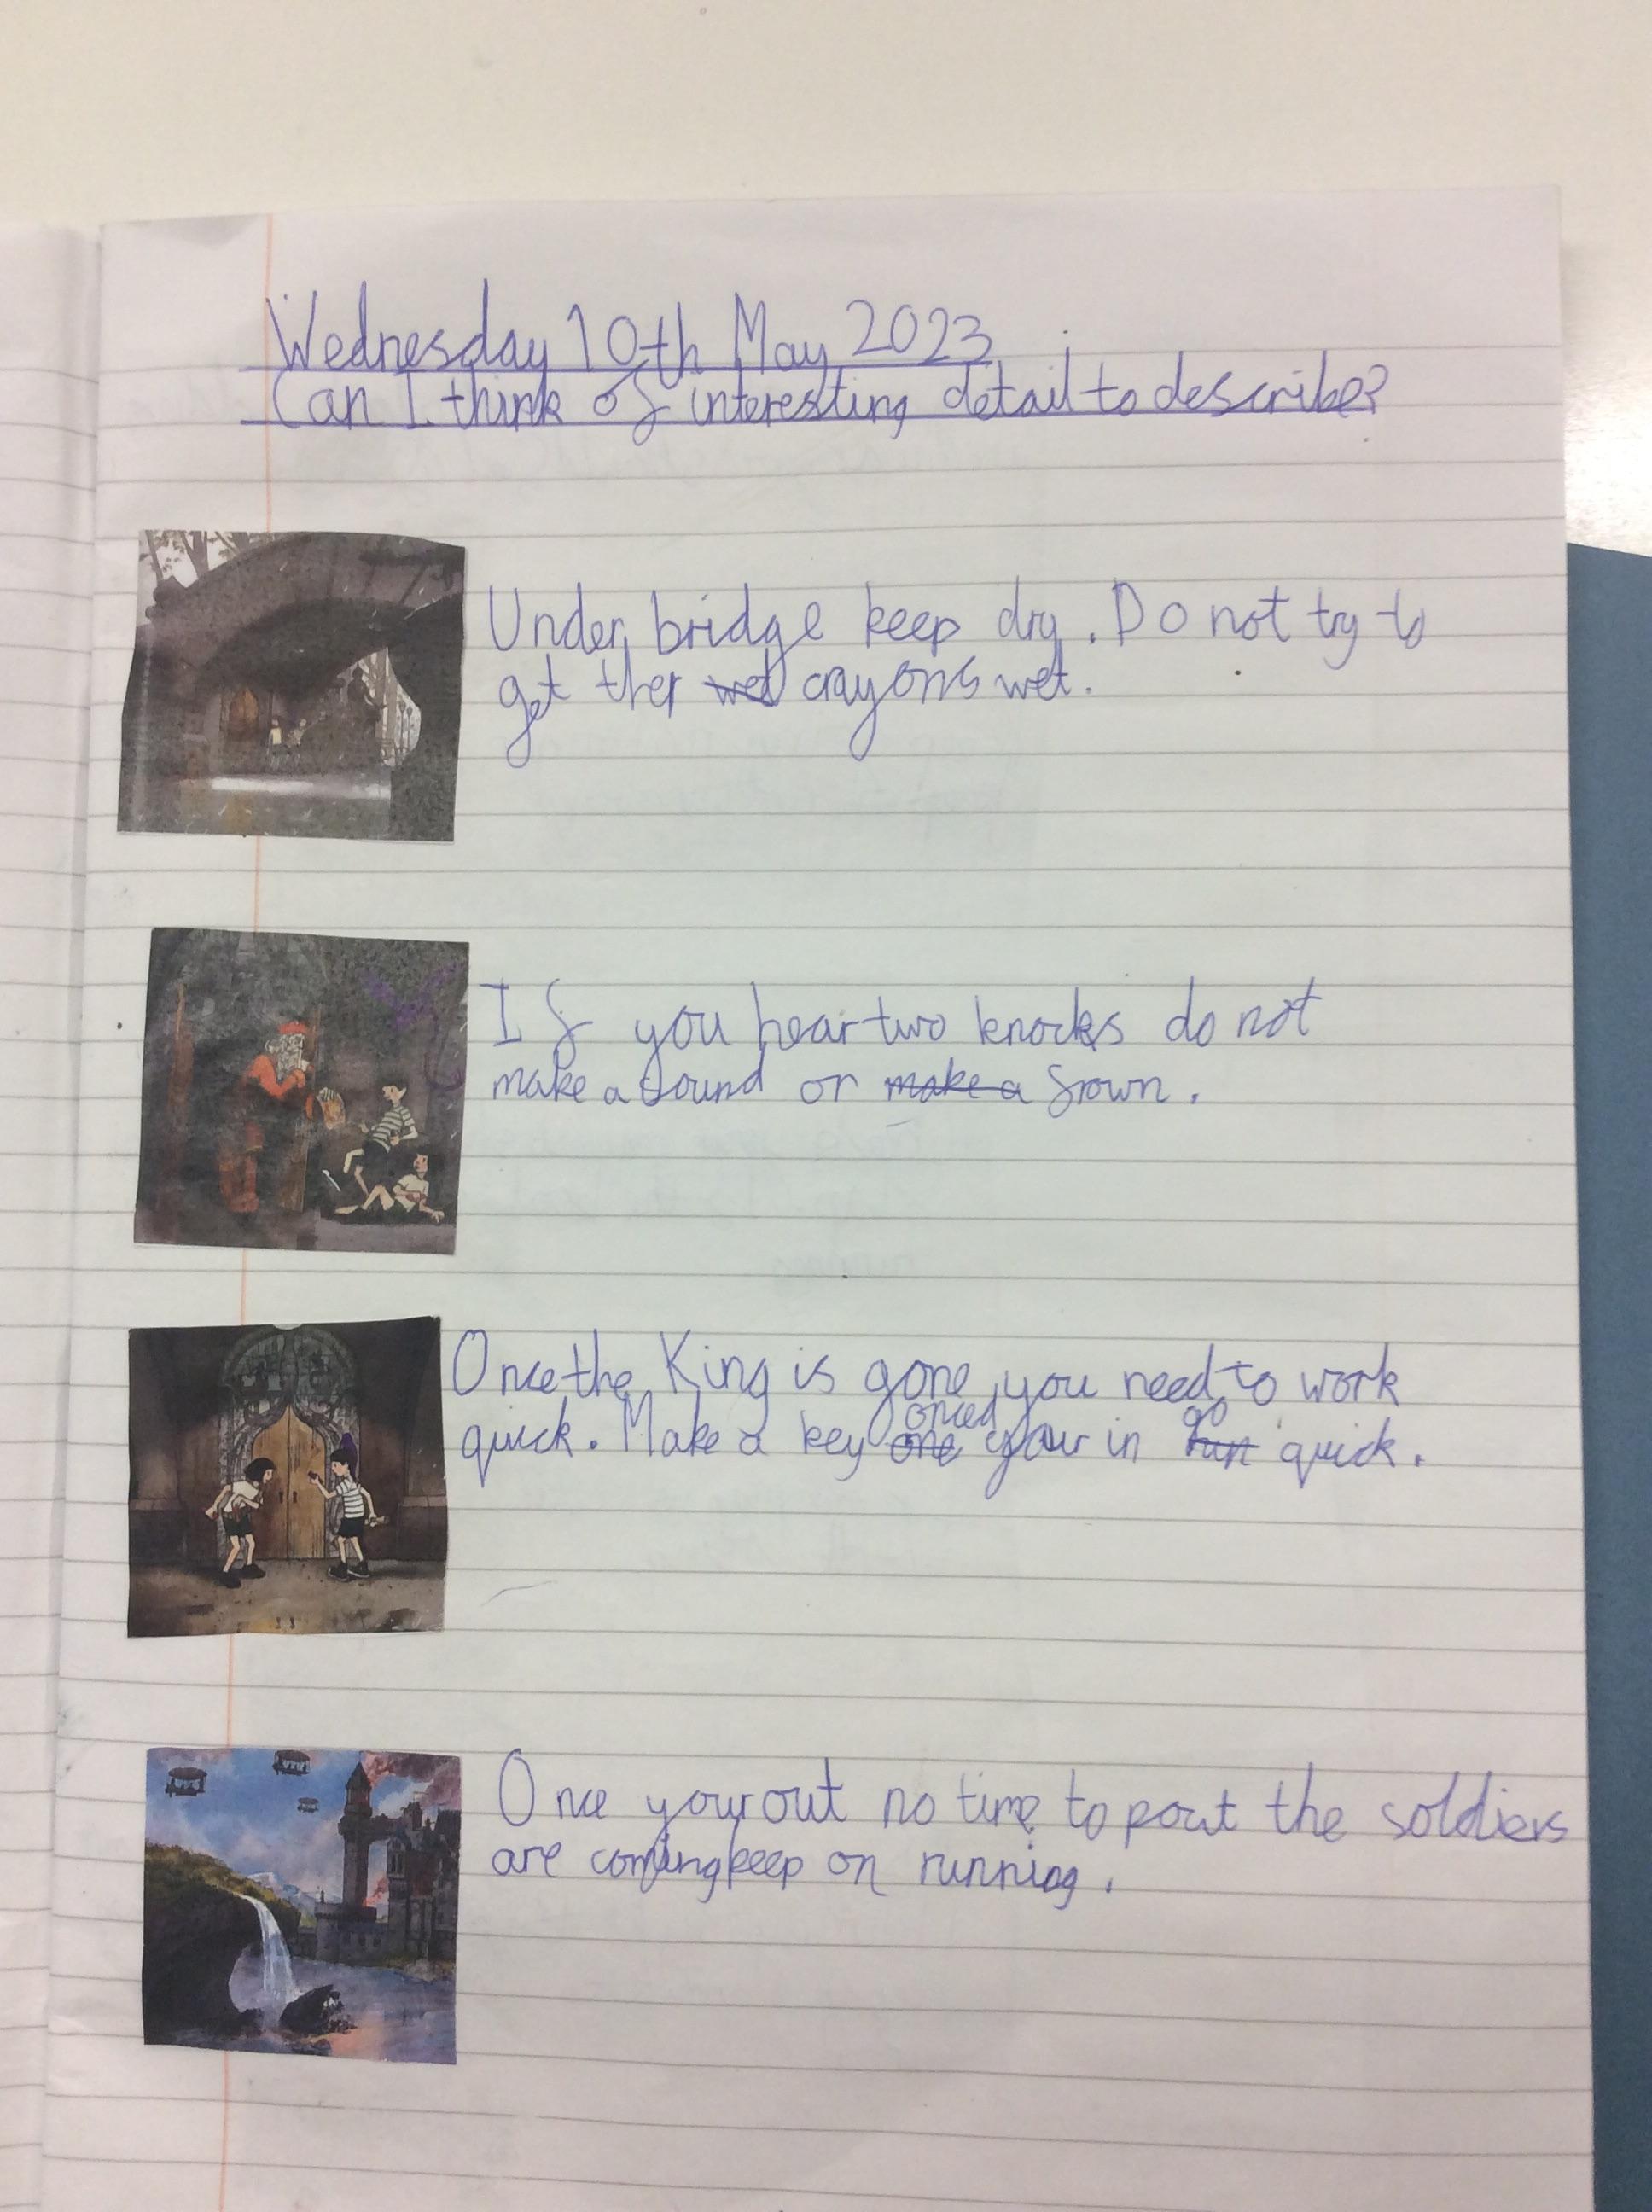 Wednesday 10th May 2023
Can I think of interesting detail to describe?
Under bridge keep dry. Do not try to
get ther wet crayons wet.
If you hear two knocks do not
make a sound or make a frown.
Once the King is gone, you need to work
onced go
quick. Make a key one your in run quick.
Once your out no time to pout the soldiers
are coming keep on running.